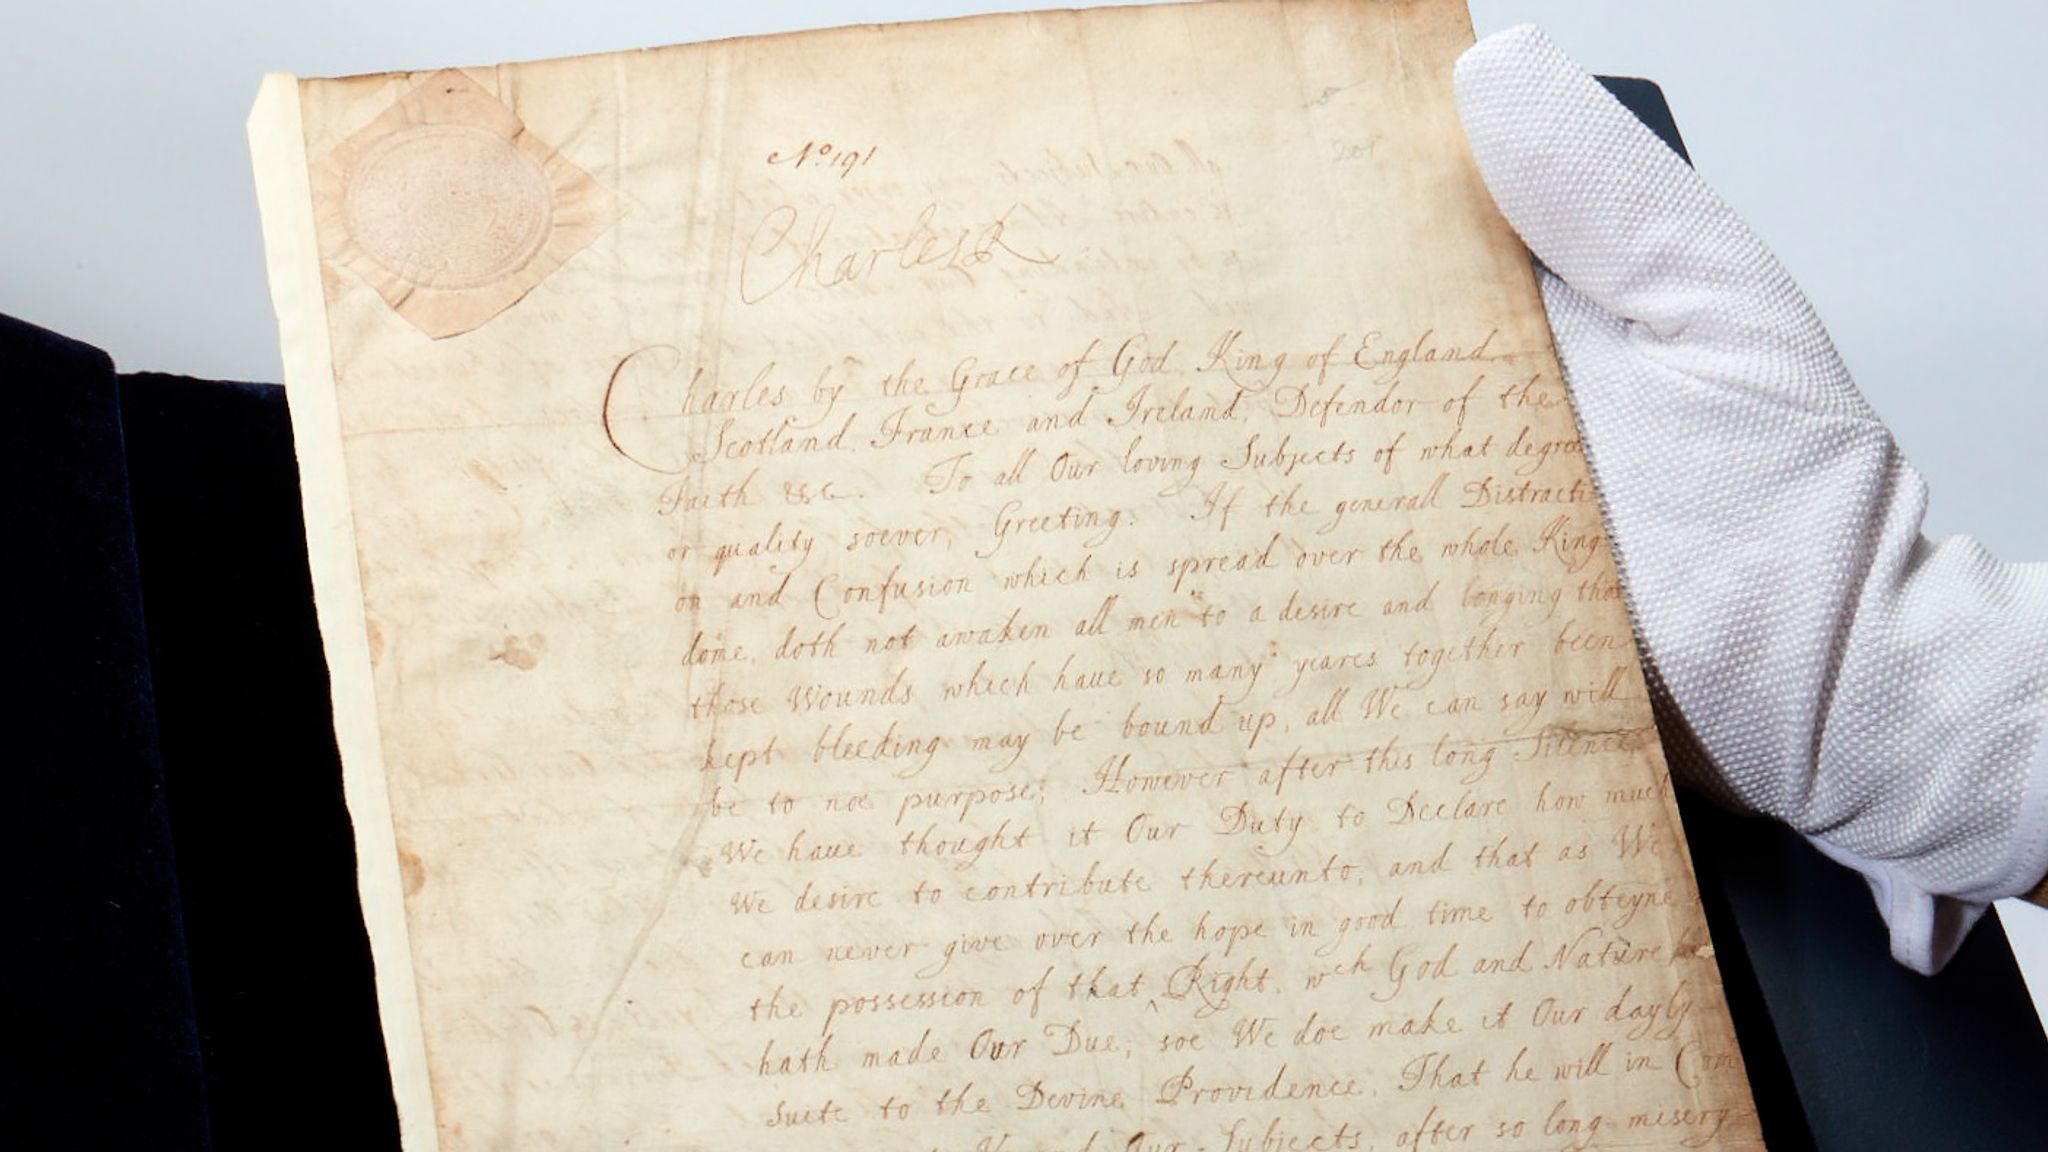 No 191
Charles R
Charles by the Grace of God, King of England
Scotland, France and Ireland, Defendor of the
Faith &c. To all Our loving Subjects of what degree
or quality soever, Greeting. If the generall Distracti
on and Confusion which is spread over the whole King
dome, doth not awaken all men to a desire and longing that
those Wounds which haue so many yeares together been
kept bleeding may be bound up, all We can say will
be to noe purpose; However after this long Silence
We haue thought it Our Duty to Declare how much
We desire to contribute thereunto, and that as We
can never give over the hope in good time to obteyne
the possession of that Right, wch God and Nature
hath made Our Due, soe We doe make it Our dayly
Suite to the Devine Providence, That he will in Com
and Our Subjects, after so long misery